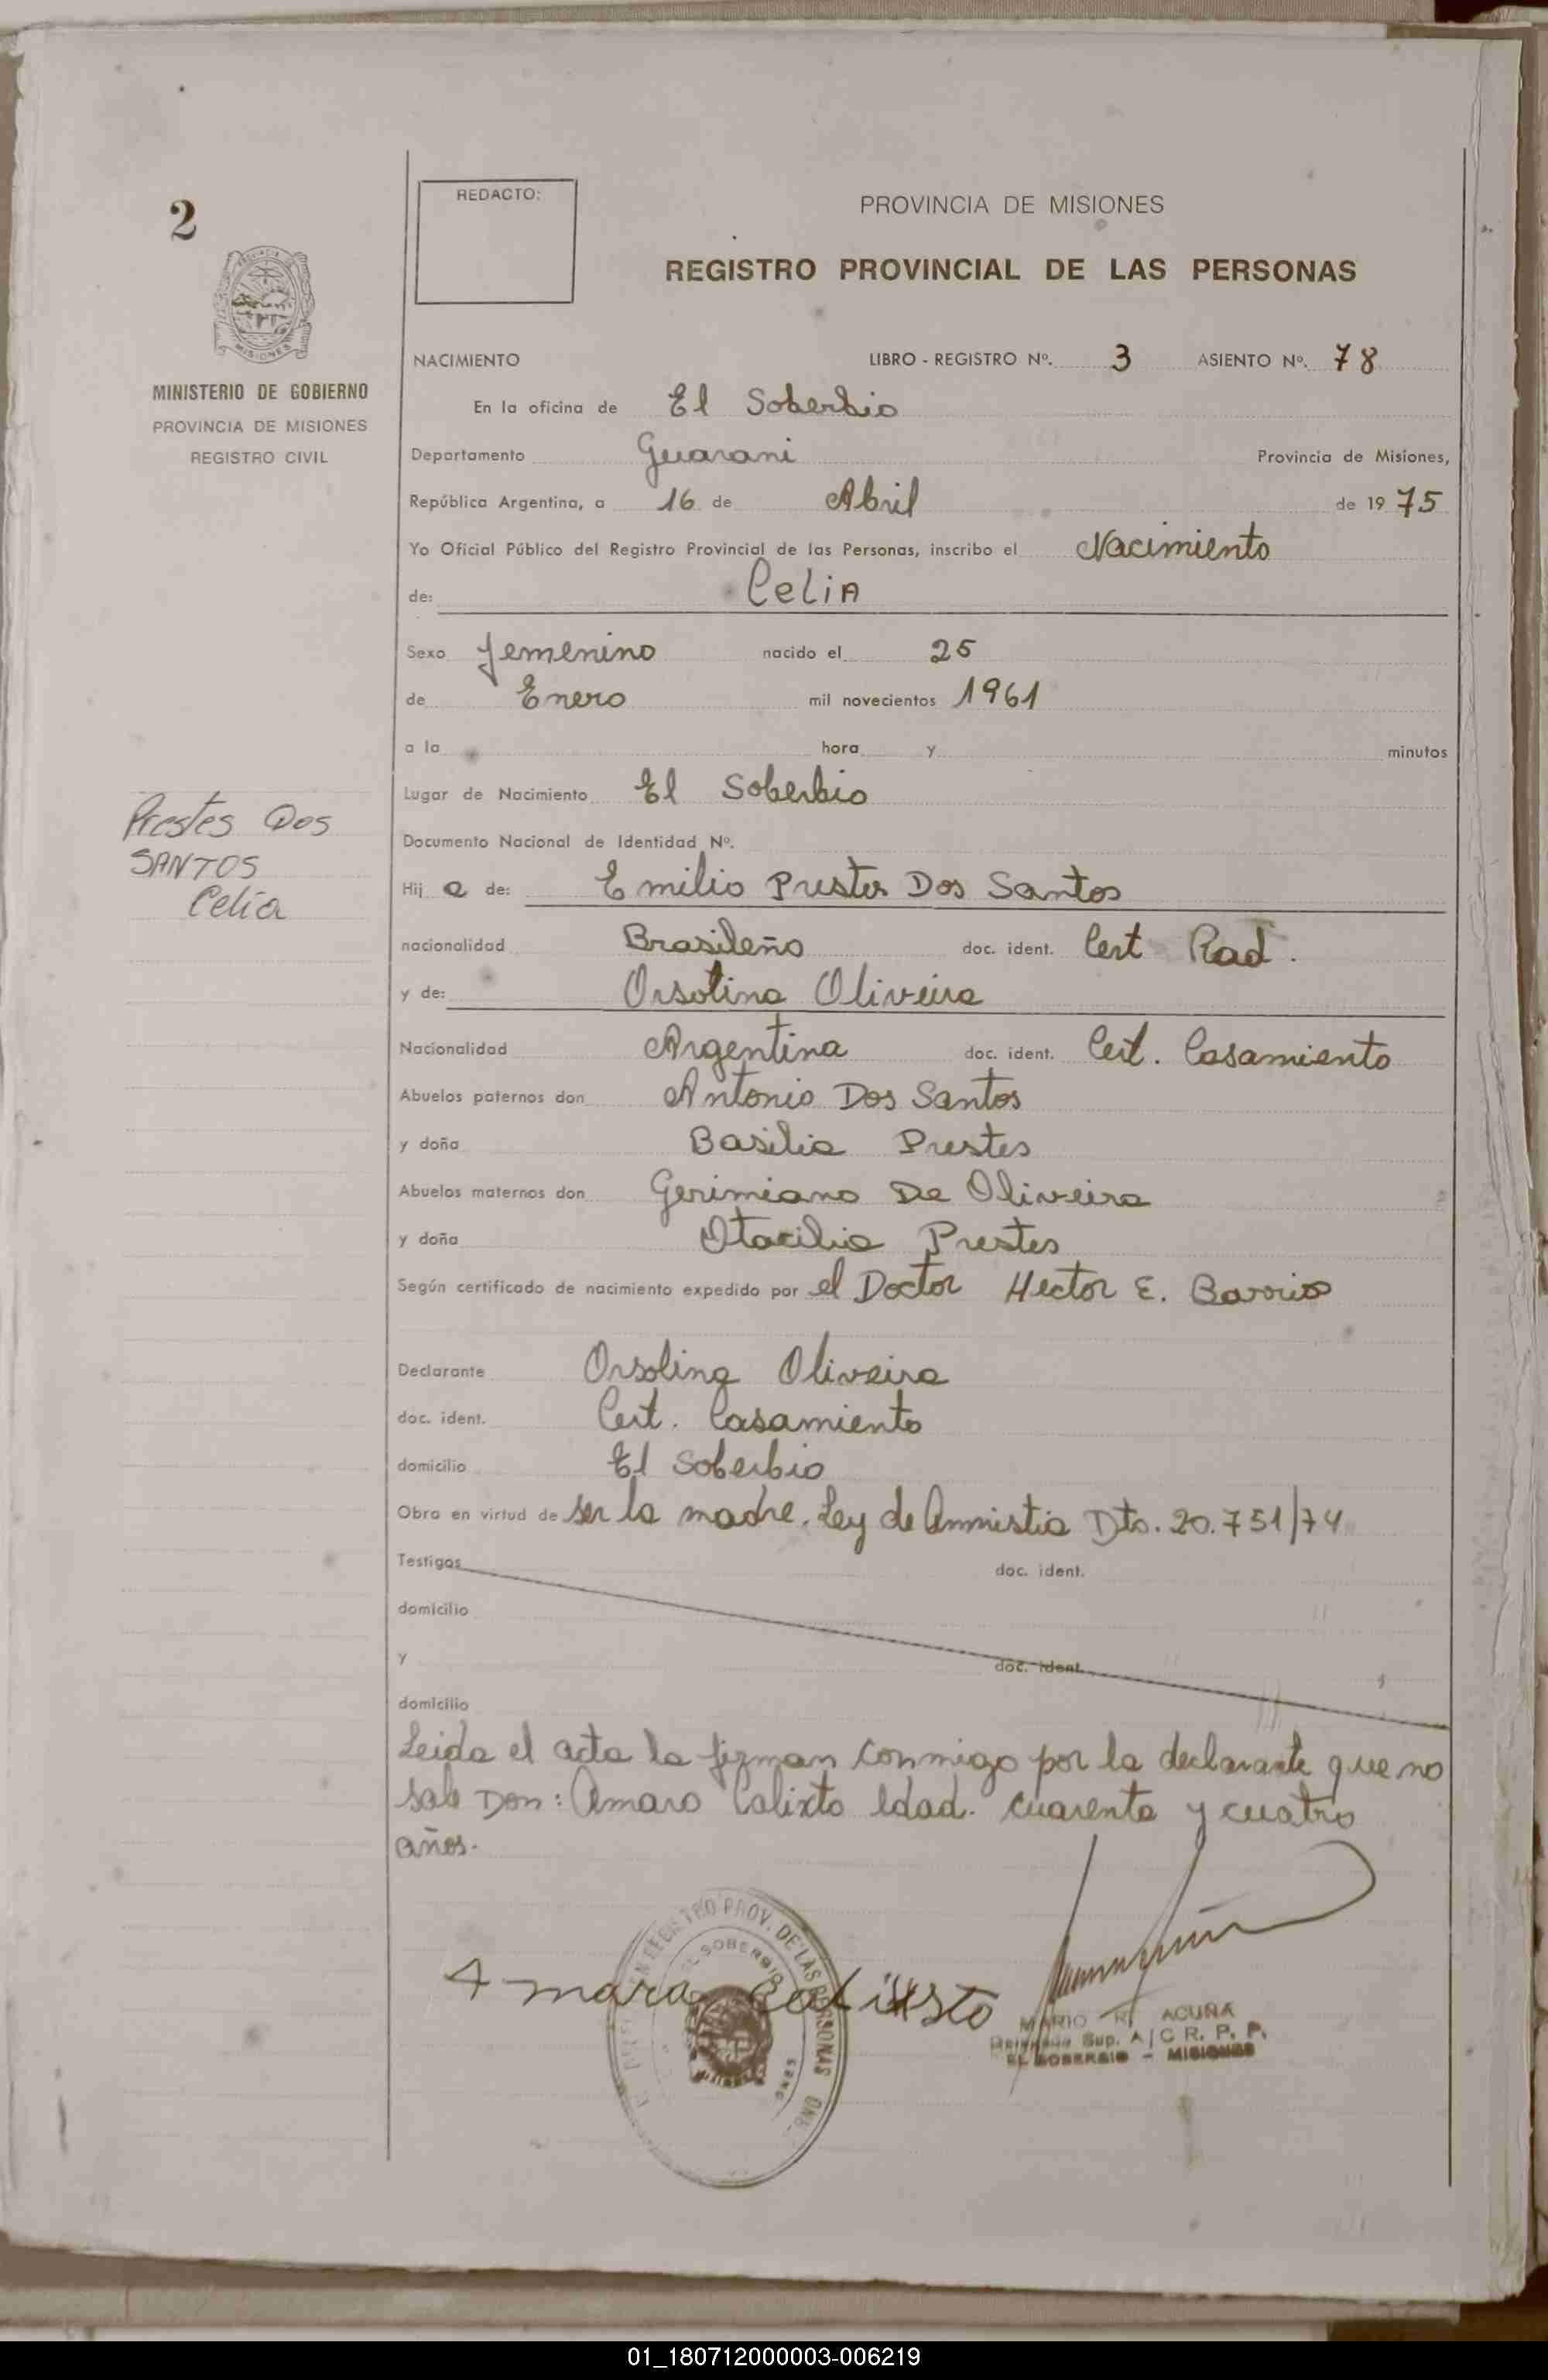 2
REDACTO:
PROVINCIA DE MISIONES
REGISTRO PROVINCIAL DE LAS PERSONAS
MISIONES
MINISTERIO DE GOBIERNO
PROVINCIA DE MISIONES
REGISTRO CIVIL
NACIMIENTO LIBRO - REGISTRO Nº. 3 ASIENTO Nº. 78
En la oficina de El Soberbio
Departamento Guarani Provincia de Misiones,
República Argentina, a 16 de Abril de 19 75
Yo Oficial Público del Registro Provincial de las Personas, inscribo el Nacimiento
de: Celia
Sexo femenino nacido el 25
de Enero mil novecientos 1961
a la hora y minutos
Lugar de Nacimiento El Soberbio
Prestes Dos
SANTOS
Celia
Documento Nacional de Identidad Nº.
Hij a de: Emilio Prestes Dos Santos
nacionalidad Brasileño doc. ident. Cert Rad.
y de: Orsolina Oliveira
Nacionalidad Argentina doc. ident. Cert. Casamiento
Abuelos paternos don Antonio Dos Santos
y doña Basilia Prestes
Abuelos maternos don Gerimiano De Oliveira
y doña Otacilia Prestes
Según certificado de nacimiento expedido por el Doctor Hector E. Barrios
Declarante Orsolina Oliveira
doc. ident. Cert. Casamiento
domicilio El Soberbio
Obra en virtud de ser la madre. Ley de Amnistia Dto. 20.751/74
Testigos doc. ident.
domicilio
y doc. ident.
domicilio
Leida el acta la firman conmigo por la declarante que no
sabe Don: Amaro Calixto Edad. cuarenta y cuatro
años.
PROV. DE LAS PERSONAS
EL SOBERBIO
MARIO R. ACUÑA
Sup. A/C R. P. P.
EL SOBERBIO - MISIONES
01_180712000003-006219